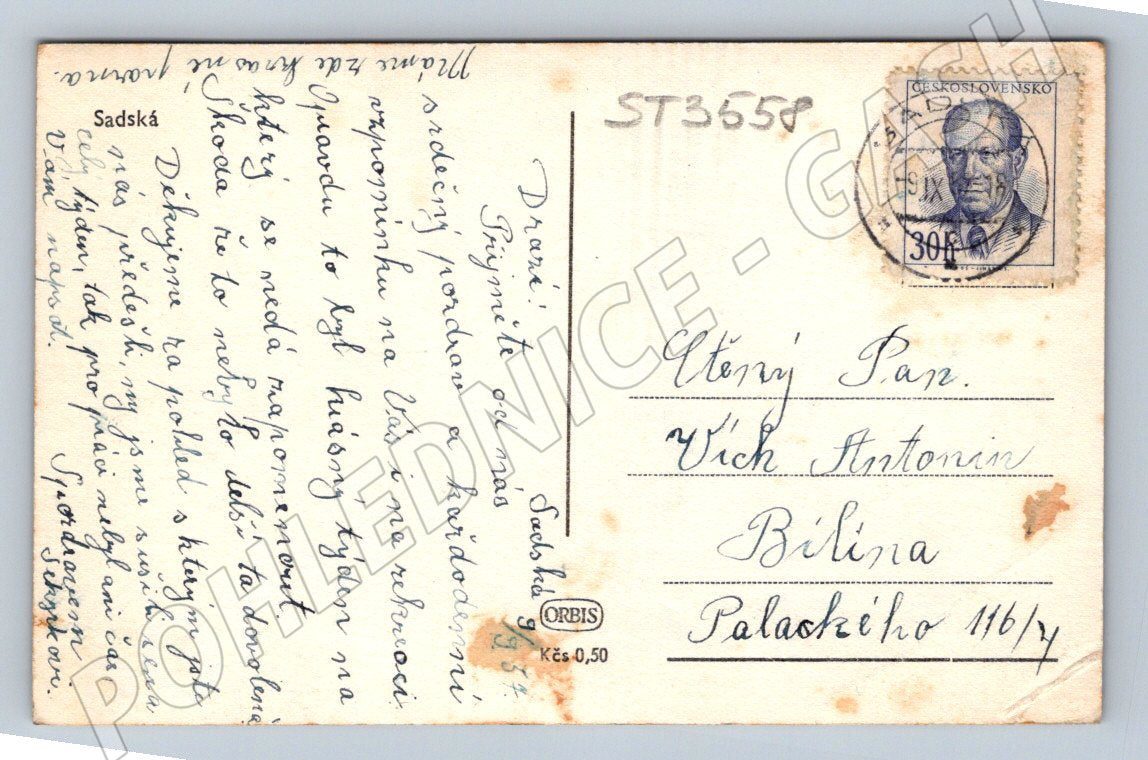 Sadská
Máme zde krásné parna.
Sadská 9/9 57
Drazí!
Přijměte od nás
srdečný pozdrav a každodenní
vzpomínku na Vás i na rekreaci
Opravdu to byl krásný týden na
který se nedá zapomenout
Škoda že to nebylo delší ta dovolená
Děkujem za pohled s kterým jste
nás předešli, my jsme sušili sena
celý týden, tak pro práci nebyl ani čas
Vám napsat.
S pozdravem
ST3558
ČESKOSLOVENSKO
30h
9.IX
Ctěný Pan.
Vích Antonin
Bílina
Palackého 116/4
ORBIS
Kčs 0,50
POHLEDNICE - GASH